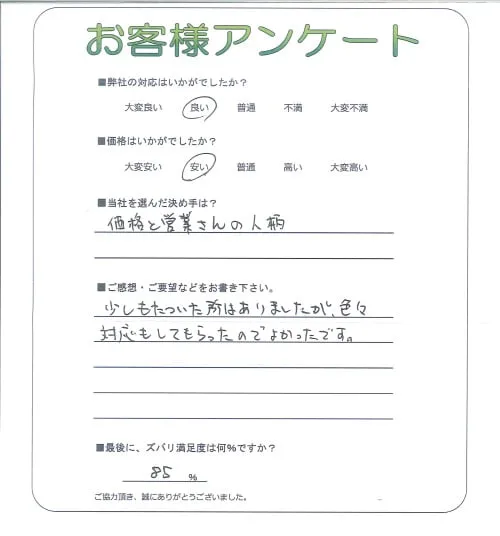 お客様アンケート
■弊社の対応はいかがでしたか？
大変良い 良い 普通 不満 大変不満
■価格はいかがでしたか？
大変安い 安い 普通 高い 大変高い
■当社を選んだ決め手は？
価格と営業さんの人柄
■ご感想・ご要望などをお書き下さい。
少しもたついた所はありましたが、色々
対応もしてもらったのでよかったです。
■最後に、ズバリ満足度は何%ですか？
85 %
ご協力頂き、誠にありがとうございました。